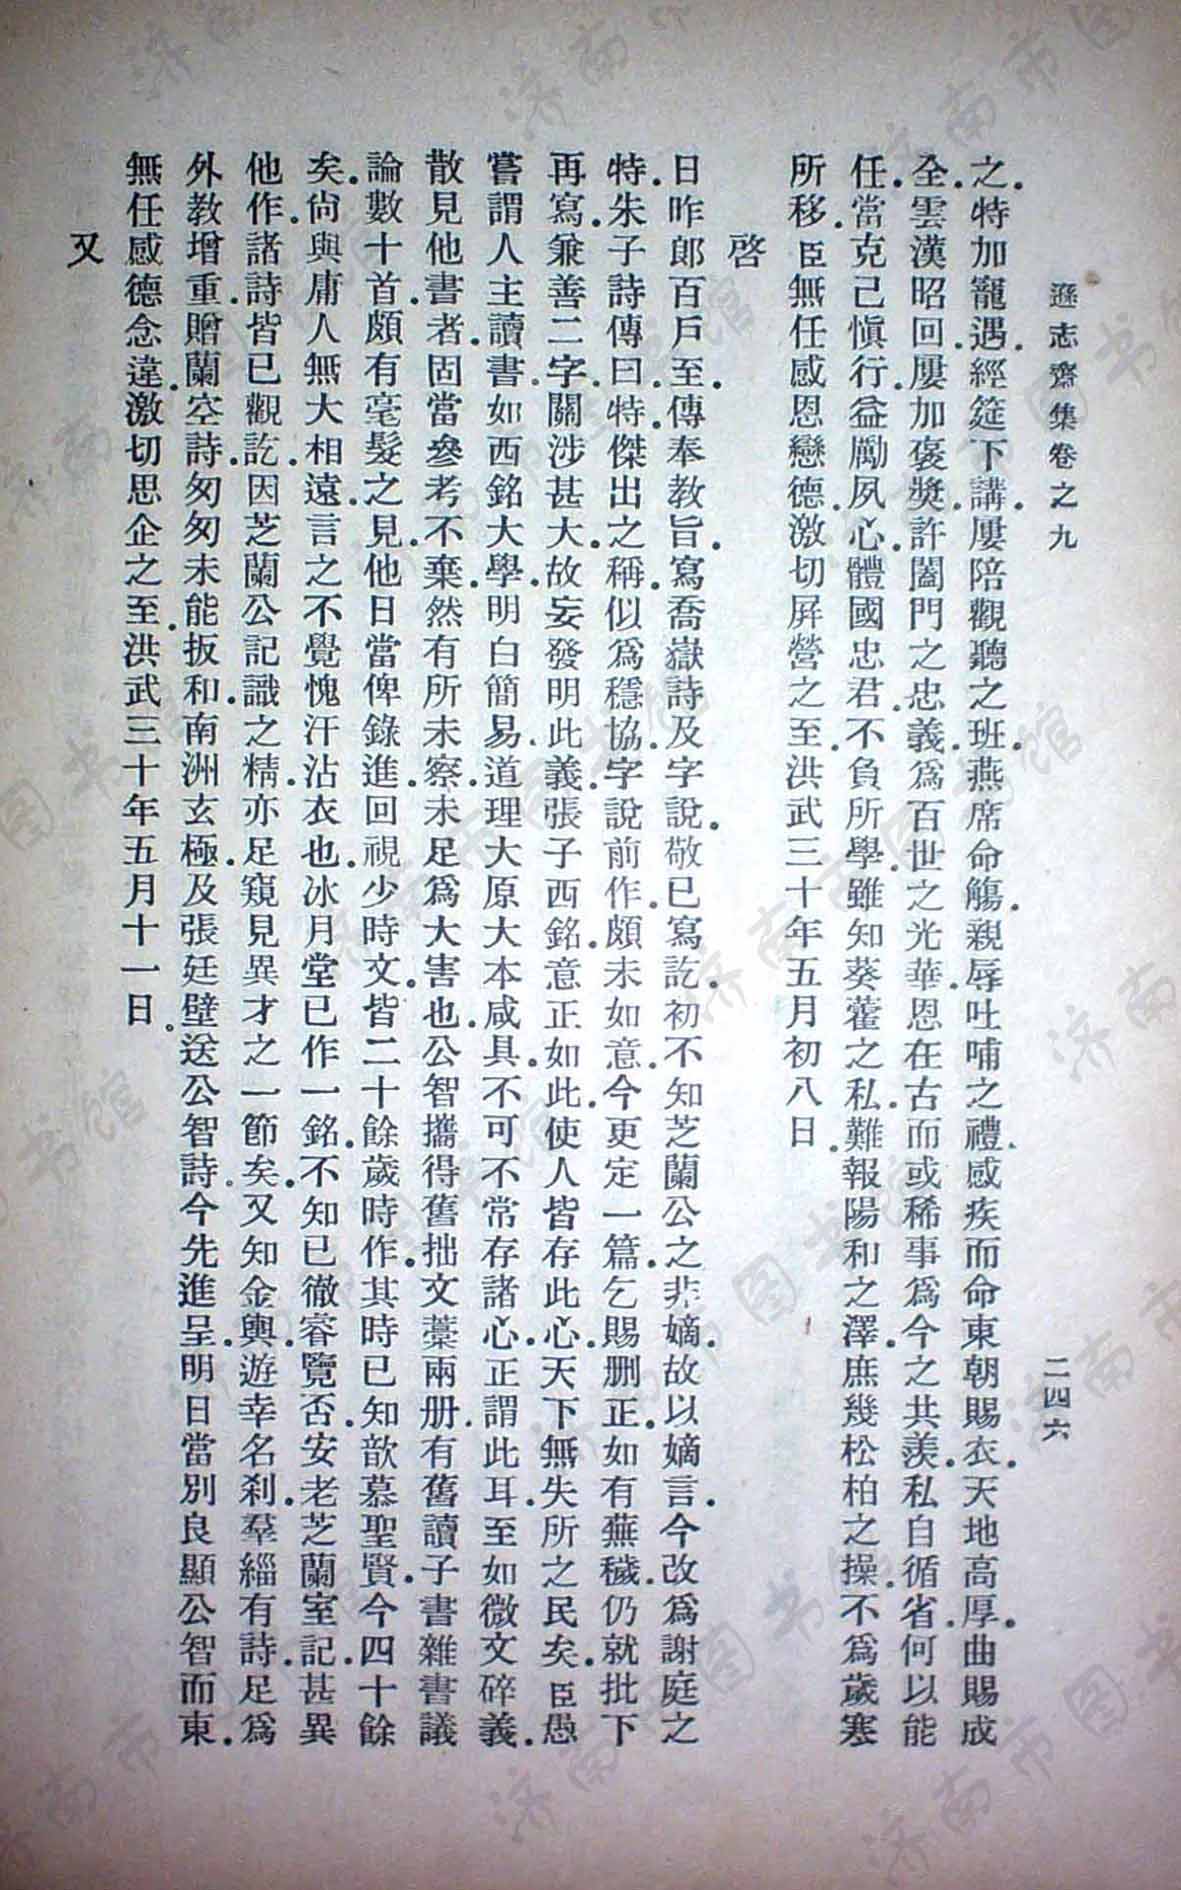 遜志齋集卷之九
二四六
之.特加寵遇.經筵下講.屢陪觀聽之班.燕席命觴.親辱吐哺之禮.感疾而命東朝賜衣.天地高厚.曲賜成
全.雲漢昭回.屢加褒獎.許闔門之忠義.爲百世之光華.恩在古而或稀.事爲今之共羨.私自循省.何以能
任.當克己愼行.益勵夙心.體國忠君.不負所學.雖知葵藿之私.難報陽和之澤.庶幾松柏之操.不爲歲寒
所移.臣無任感恩戀德.激切屏營之至.洪武三十年五月初八日.
啓
日昨郎百戶至.傳奉教旨.寫喬嶽詩及字說.敬已寫訖.初不知芝蘭公之非嫡.故以嫡言.今改爲謝庭之
特.朱子詩傳曰.特.傑出之稱.似爲穩協.字說前作.頗未如意.今更定一篇.乞賜刪正.如有蕪穢.仍就批下
再寫.兼善二字.關涉甚大.故妄發明此義.張子西銘.意正如此.使人皆存此心.天下無失所之民矣.臣愚
嘗謂人主讀書.如西銘大學.明白簡易.道理大原大本咸具.不可不常存諸心.正謂此耳.至如微文碎義.
散見他書者.固當參考不棄.然有所未察.未足爲大害也.公智攜得舊拙文藁兩册.有舊讀子書雜書議
論數十首.頗有毫髮之見.他日當俾錄進.回視少時文.皆二十餘歲時作.其時已知歆慕聖賢.今四十餘
矣.尙與庸人無大相遠.言之不覺愧汗沾衣也.冰月堂已作一銘.不知已徹睿覽否.安老芝蘭室記.甚異
他作.諸詩皆已觀訖.因芝蘭公記識之精.亦足窺見異才之一節矣.又知金輿.遊幸名刹.羣緇有詩.足爲
外教增重.贈蘭空詩.匆匆未能扳和.南洲玄極.及張廷壁送公智詩.今先進呈.明日當別良顯公智而東.
無任感德念違.激切思企之至.洪武三十年五月十一日。
又